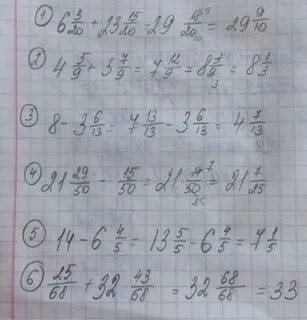 1) 6 3/20 + 23 15/20 = 29 18⁹/20₁₀ = 29 9/10
2) 4 5/9 + 3 7/9 = 7 12/9 = 8 3/9₃ = 8 1/3
3) 8 - 3 6/13 = 7 13/13 - 3 6/13 = 4 7/13
4) 21 29/50 - 15/50 = 21 14⁷/50₂₅ = 21 7/25
5) 14 - 6 4/5 = 13 5/5 - 6 4/5 = 7 1/5
6) 25/68 + 32 43/68 = 32 68/68 = 33